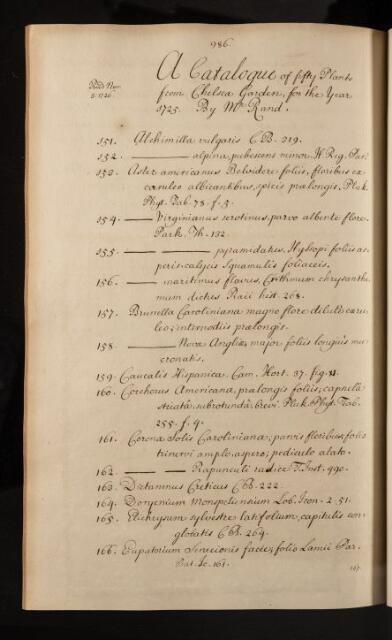 986.
A Catalogue of fifty Plants
Read Nov.
from Chelsea Garden, for the Year
1725. By Mr. Rand.
151. Alchimilla vulgaris C.B. 319.
152. ——— alpina, pubescens minor H. Reg. Par.
153. Aster americanus Belvidere foliis, floribus ex
cæruleo albicantibus, spicis prælongis. Pluk.
Phyt. Tab. 78. f. 5.
154. — Virginianus serotinus, parvo albente flore.
Park. Th. 132.
155. ——— pyramidatus, Hyssopi foliis as-
peris, calycis squamulis foliaceis.
156. ——— maritimus flavus, Crithmum chrysanthe-
mum dictus Raii hist. 268.
157. Brunella Caroliniana magno flore dilute cæru-
leo; internodiis prælongis.
158. ——— Novæ Angliæ, major foliis longius mu-
cronatis.
159. Caucalis Hispanica. Cam. Hort. 37. fig.
160. Corchorus Americana, prælongis foliis, capsula
striata, subrotunda, brevi. Pluk. Phyt. Tab.
255. f. 4.
161. Corona Solis Caroliniana; parvis floribus, folio
trinervi amplo, aspero; pediculo alato.
162. ——— ——— Rapunculi radice T. Inst. 490.
163. Dictamnus Creticus C.B. 222.
164. Dorycnium Monspeliensium Lob. Icon. 2. 51.
165. Elichrysum sylvestre latifolium, capitulis con-
globatis C.B. 264.
166. Eupatorium Senecionis facie; folio Lamii Par.
Bat. Ic. 161.
167.